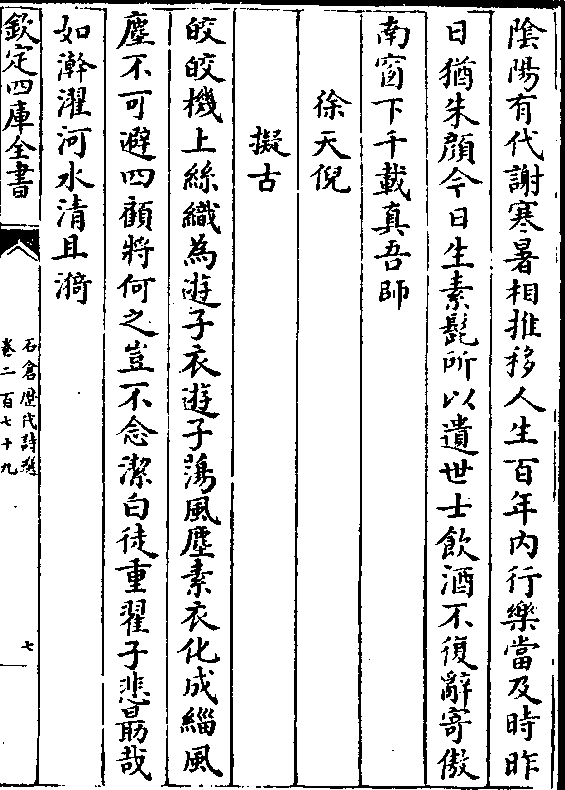 陰陽有代謝寒暑相推移人生百年内行樂當及時昨
日猶朱顔今日生素髭所以遺世士飲酒不復辭寄傲
南窗下千載真吾師
徐天倪
擬古
皎皎機上絲織為遊子衣遊子蕩風塵素衣化成緇風
塵不可避四顧將何之豈不念潔白徒重翟子悲勗哉
如澣濯河水清且漪
欽定四庫全書
石倉歴代詩選
卷二百七十九
七